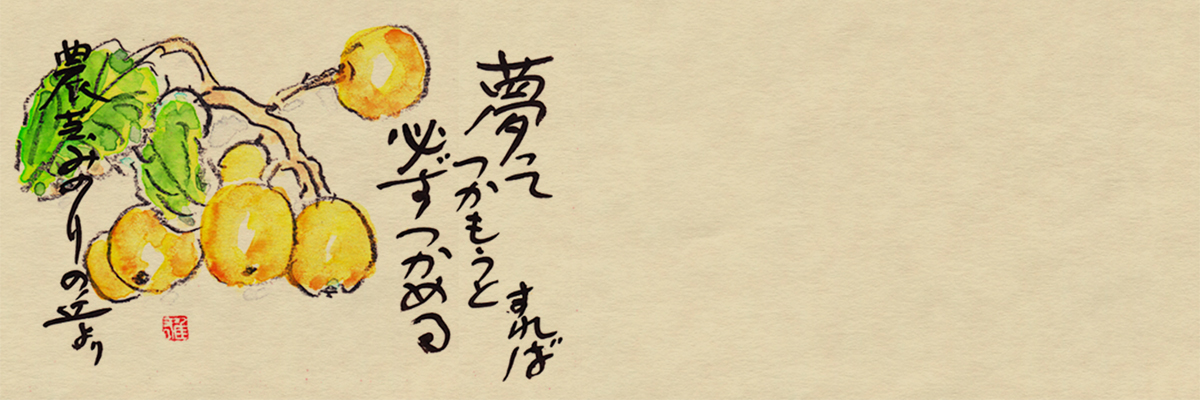 夢って
つかもうと
すれば
必ずつかめる
農芸みのりの丘より
雅